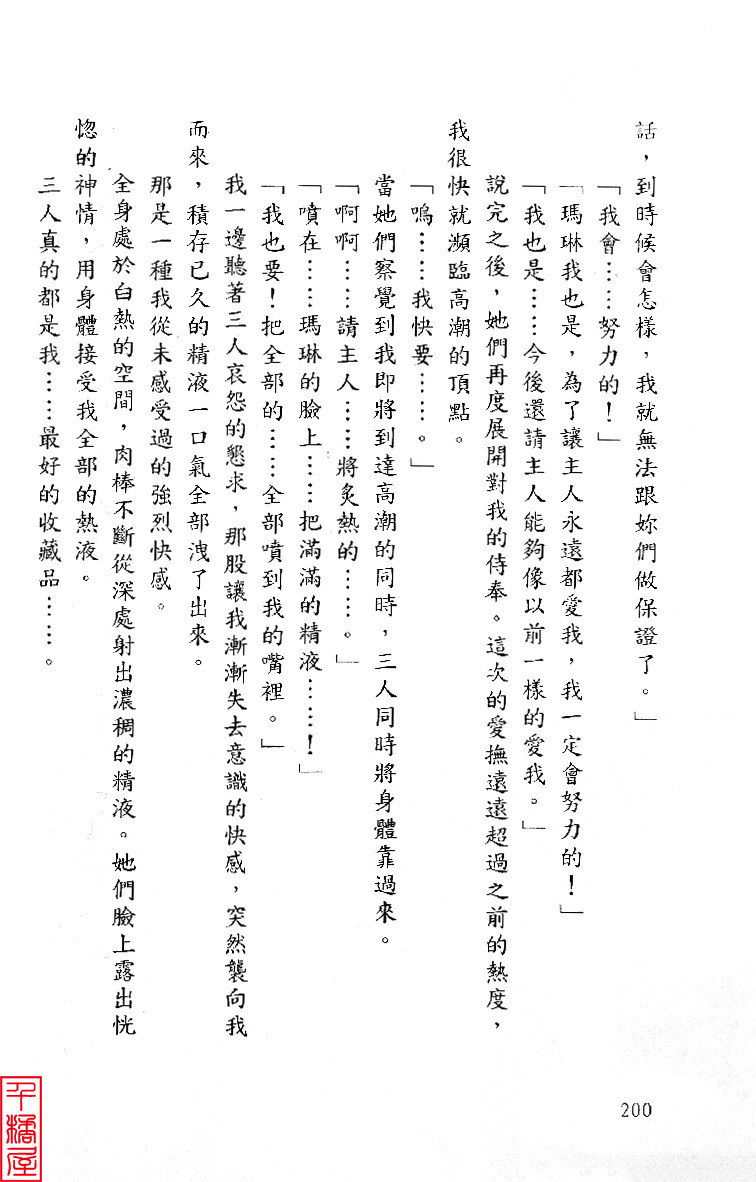 話，到時候會怎樣，我就無法跟妳們做保證了。」
「我會……努力的！」
「瑪琳我也是，為了讓主人永遠都愛我，我一定會努力的！」
「我也是……今後還請主人能夠像以前一樣的愛我。」
說完之後，她們再度展開對我的侍奉。這次的愛撫遠遠超過之前的熱度，
我很快就瀕臨高潮的頂點。
「嗚……我快要……。」
當她們察覺到我即將到達高潮的同時，三人同時將身體靠過來。
「啊啊……請主人……將炙熱的……。」
「噴在……瑪琳的臉上……把滿滿的精液……！」
「我也要！把全部的……全部噴到我的嘴裡。」
我一邊聽著三人哀怨的懇求，那股讓我漸漸失去意識的快感，突然襲向我
而來，積存已久的精液一口氣全部洩了出來。
那是一種我從未感受過的強烈快感。
全身處於白熱的空間，肉棒不斷從深處射出濃稠的精液。她們臉上露出恍
惚的神情，用身體接受我全部的熱液。
三人真的都是我……最好的收藏品……。
200
千橘屋